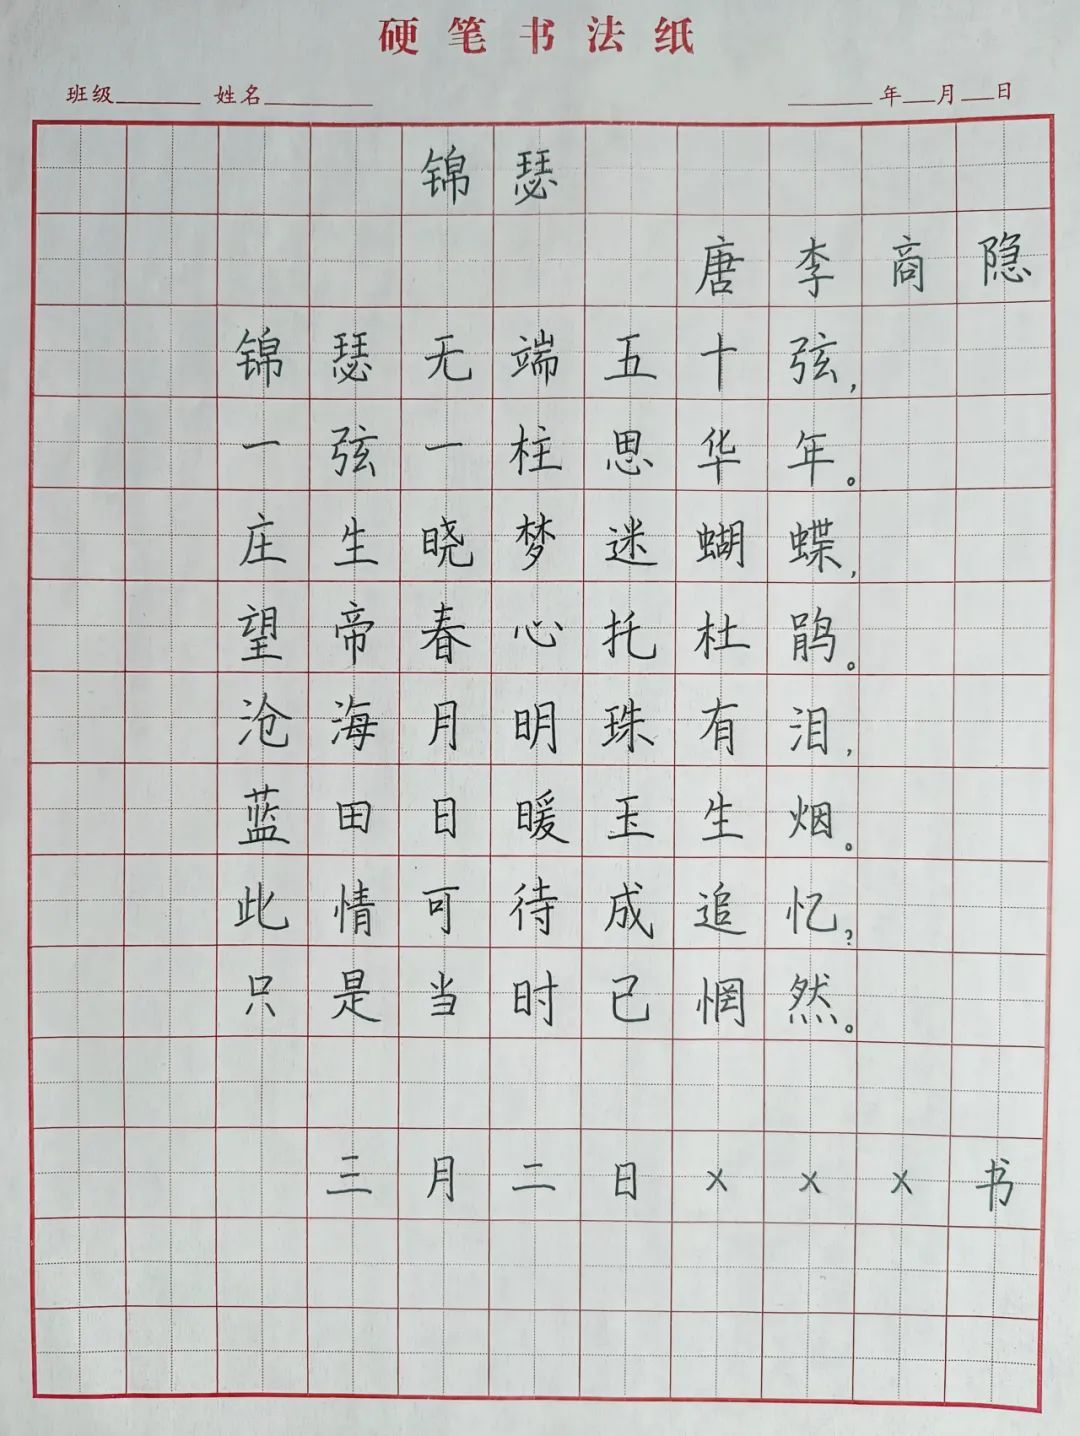 硬笔书法纸
班级 姓名 年 月 日
锦瑟
唐李商隐
锦瑟无端五十弦，
一弦一柱思华年。
庄生晓梦迷蝴蝶，
望帝春心托杜鹃。
沧海月明珠有泪，
蓝田日暖玉生烟。
此情可待成追忆？
只是当时已惘然。
三月二日×××书